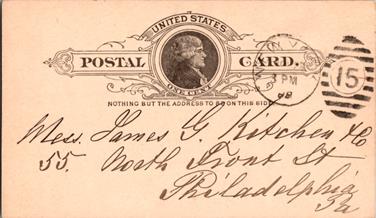 UNITED STATES
POSTAL CARD.
ONE CENT
NOTHING BUT THE ADDRESS TO BE ON THIS SIDE
3 PM
15
Mess. James G. Kitchen & Co
55. North Front St
Philadelphia
Pa